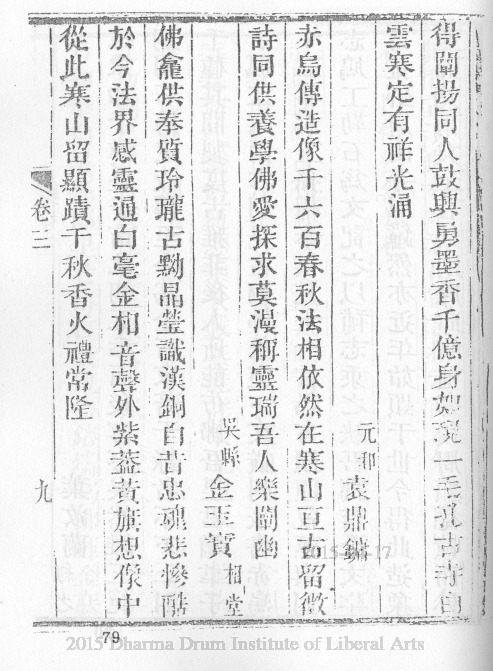 得闡揚同人鼓興勇墨香千億身如現
雲寒定有祥光涌
元和 袁鼎鏞
赤烏傳造像千六百春秋法相依然在寒山亘古留徵
詩同供養學佛愛探求莫漫稱靈瑞吾人樂闡幽
吳縣 金玉寶 相堂
佛龕供奉質玲瓏古黝晶瑩識漢銅自昔忠魂悲慘酷
於今法界感靈通白毫金相音聲外紫蓋黃旗想像中
從此寒山留顯蹟千秋香火禮常隆
卷三
九
79
2015 Dharma Drum Institute of Liberal Arts